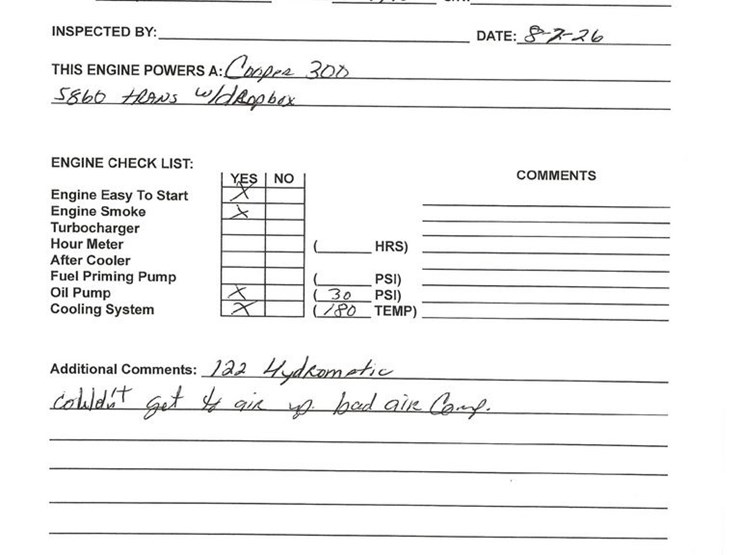 INSPECTED BY: DATE: 8-7-26
THIS ENGINE POWERS A: Cooper 300
5860 trans w/dropbox
ENGINE CHECK LIST:
YES NO COMMENTS
Engine Easy To Start X
Engine Smoke X
Turbocharger
Hour Meter ( HRS)
After Cooler
Fuel Priming Pump ( PSI)
Oil Pump X ( 30 PSI)
Cooling System X ( 180 TEMP)
Additional Comments: 122 Hydromatic
couldn't get air up. bad air Comp.